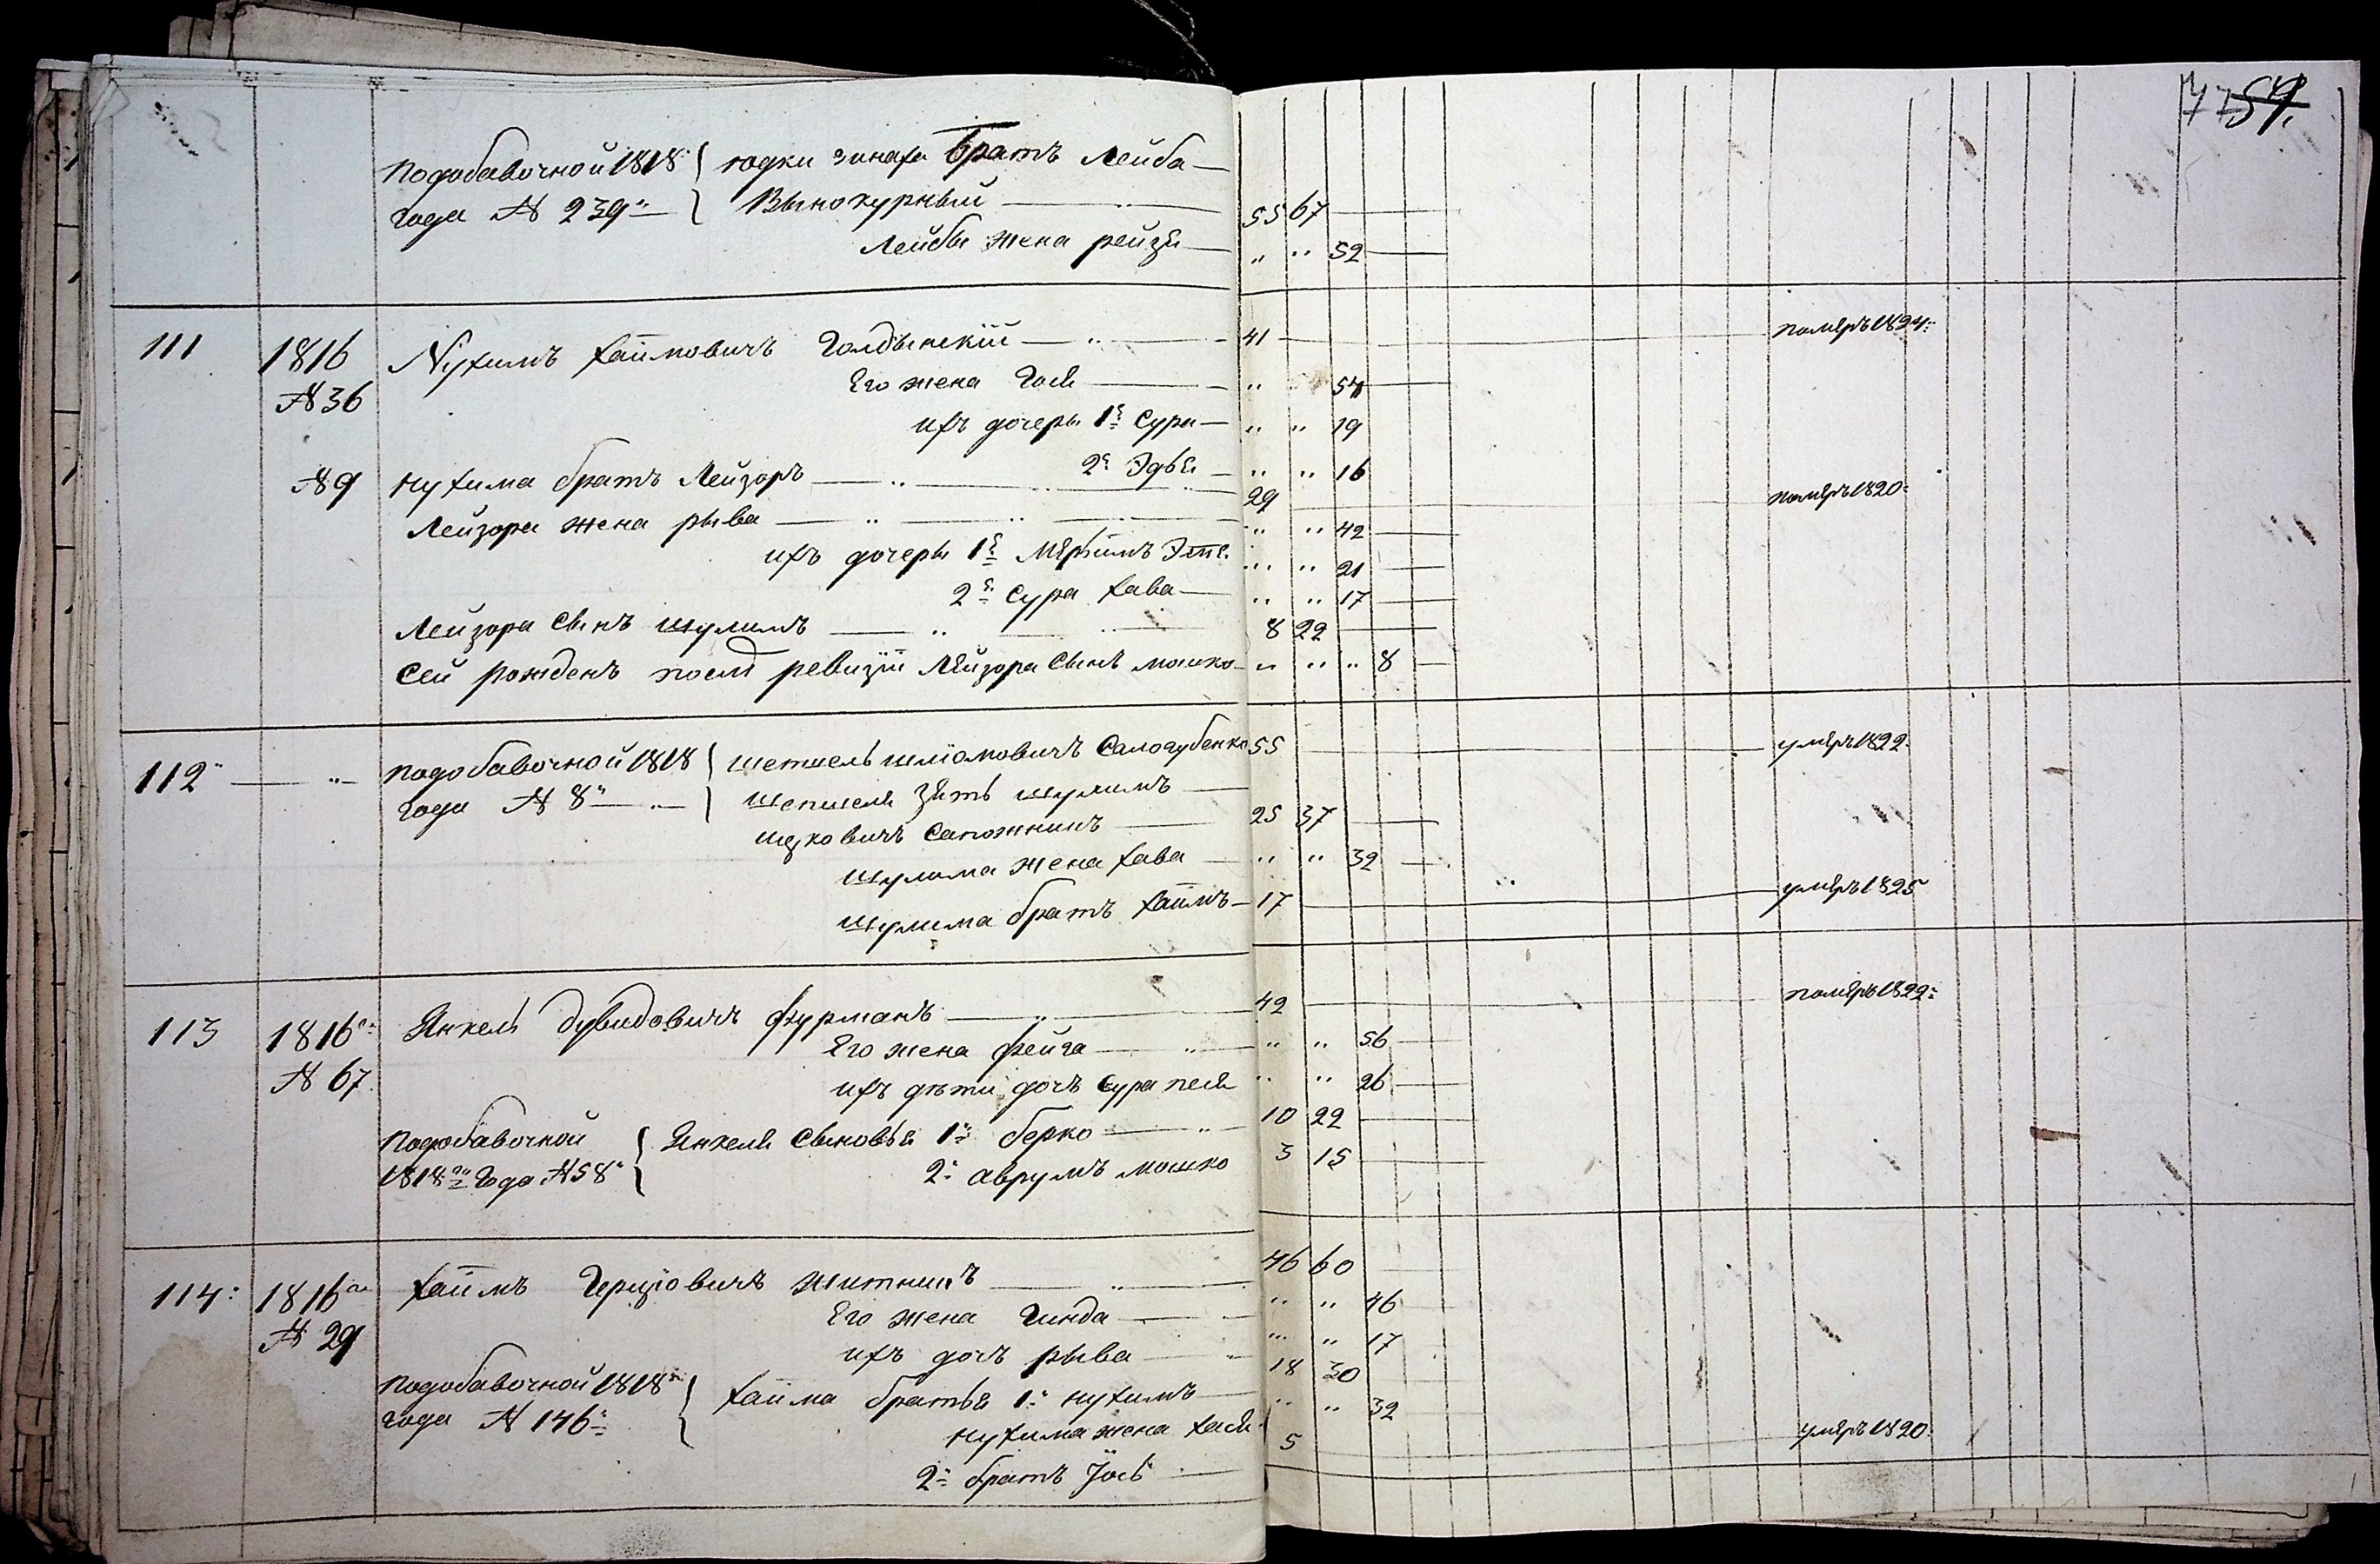 77 54.
подобавочной 1818 юдки зинаха братъ Лейба
года № 239 Вынокурный 55 67
Лейбы жена рейзя " " 52
111 1816 Нухимъ хаймовичъ Голдынскій 41 померъ 1824
№ 36 Его жена Гася " 54
ихъ дочеры 1я Сура " " 19
2я Эдья " " 16
№ 9 нухима братъ Лейзоръ 29 померъ 1820
Лейзора жена рыва " " 42
ихъ дочеры 1я Мяріимъ Эте " " 21
2я Сура хава " " 17
Лейзора сынъ шулимъ 8 22
Сей рожденъ посля ревизіи Лейзора сынъ мошко " " " 8
112 " подобавочной 1818 шепшель шліомовичъ Салогубенко 55 умеръ 1822
года № 8 шепшеля зять шулимъ
ицковичъ Сапожникъ 25 37
шулима жена хава " " 32
шулима братъ хаимъ 17 умеръ 1825
113 1816 Янкель дувидовичъ фурманъ 42 померъ 1822
№ 67 Его жена фейга " " 56
ихъ дѣти дочъ Сура песя " " 26
подобавочной Янкеля сыновья 1й берко 10 22
1818го года № 58 2й аврумъ мошко 3 15
114 1816го хаимъ Герщовичъ житникъ 46 60
№ 29 Его жена Гинда " " 46
ихъ дочъ рыва " " 17
подобавочной 1818 хаима братья 1й нухимъ 18 30
года № 146 нухима жена хася " " 32
2й братъ Іось 5 умеръ 1820